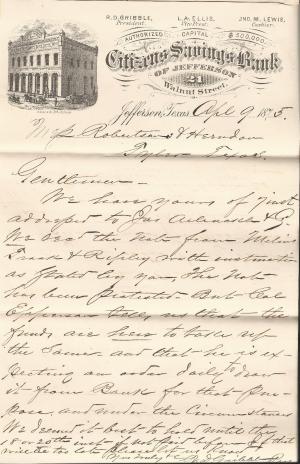 R.D. GRIBBLE, President.
L.A. ELLIS, Vice Prest.
JNO. M. LEWIS, Cashier.
AUTHORIZED CAPITAL $500,000.
Citizens Savings Bank
OF JEFFERSON
21
Walnut Street.
Jefferson, Texas, Apl 9 1875.
Mess Robertson & Herndon
Tyler Texas.
Gentlemen
We have yours of 7 inst
addressed to
We recd the Note from
& Ripley with instructions
as stated by you, The Note
has been Protested. But Col
Epperson tells us that the
funds are here to take up
the same and that he is ex-
pecting an order daily to draw
it from Bank for that Pur-
pose, and under the Circumstances
We deemed it best to hold until
18 or 20th inst if not paid before if that
will be too late please let us know
Yours truly